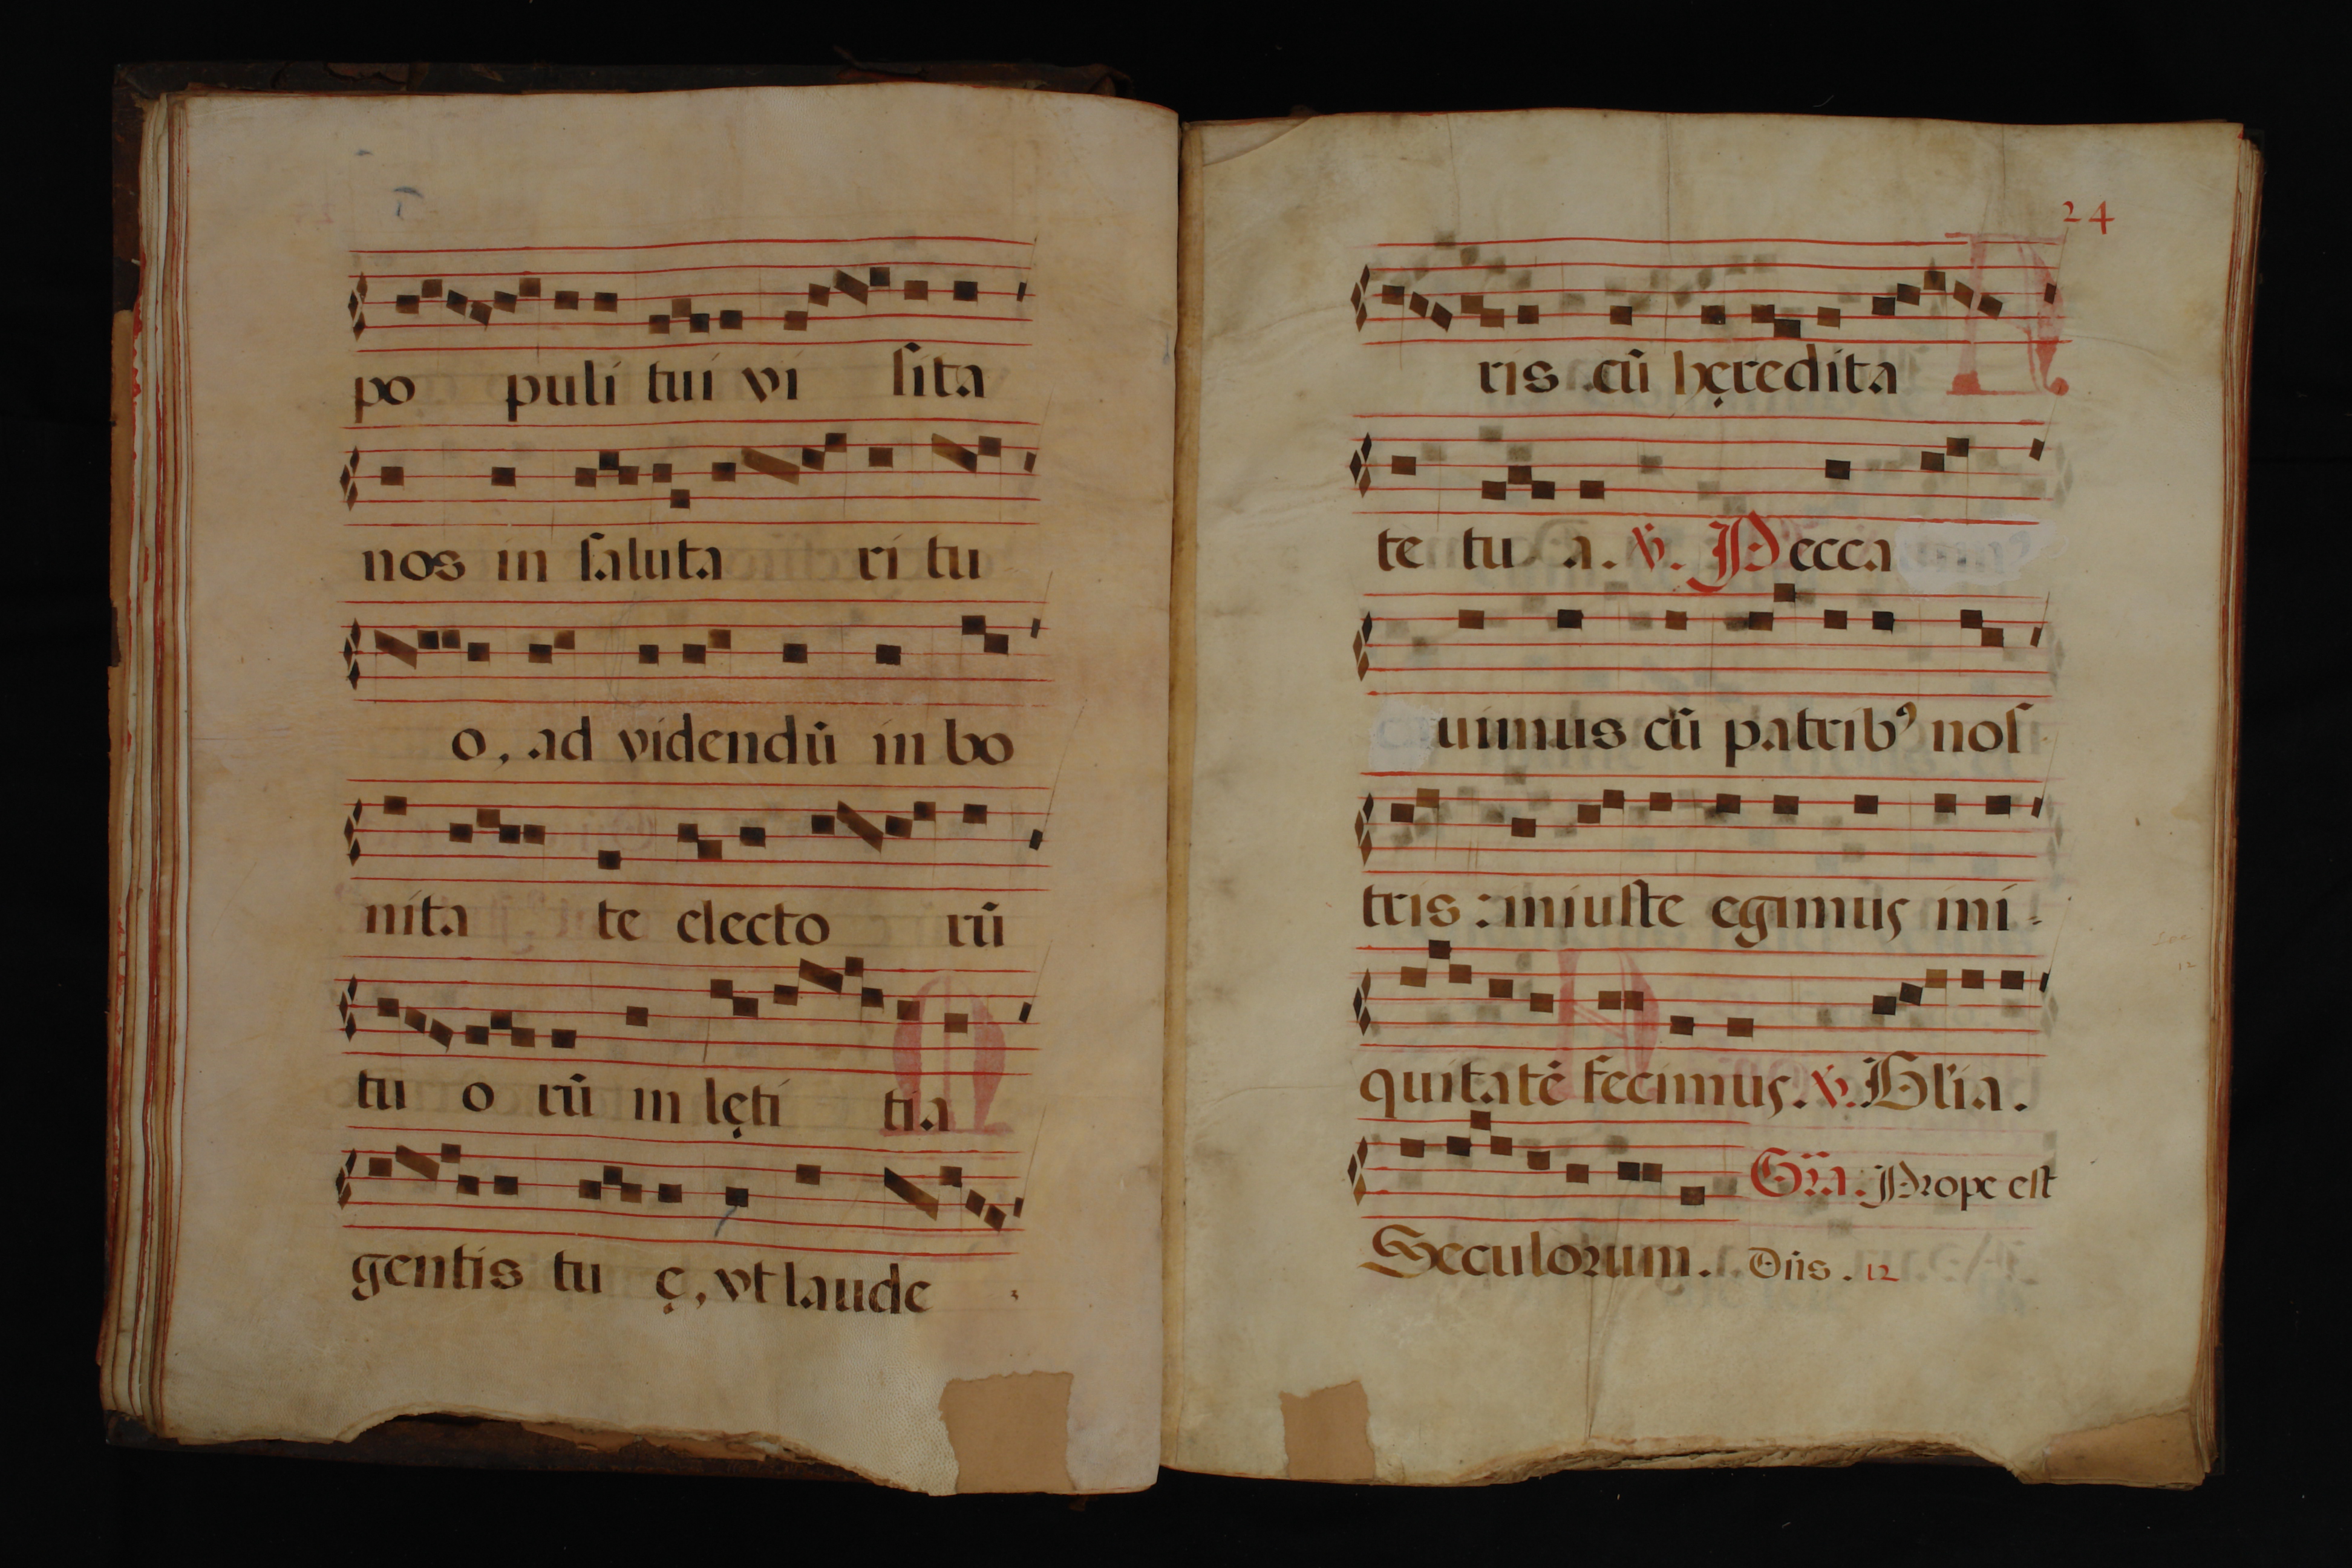 po puli tui vi ſita
nos in ſaluta ri tu
o, ad videndū in bo
nita te electo rū
tu o rū in lęti tia
gentis tu ę, vt laude
24
ris cū hęredita
te tu a. ℣. Pecca
uimus cū patribꝰ noſ
tris : iniuſte egimus ini-
quitatē fecimus. ℣. Gl'ia.
Gr̃a. Prope eſt
Seculorum. Dñs. 12